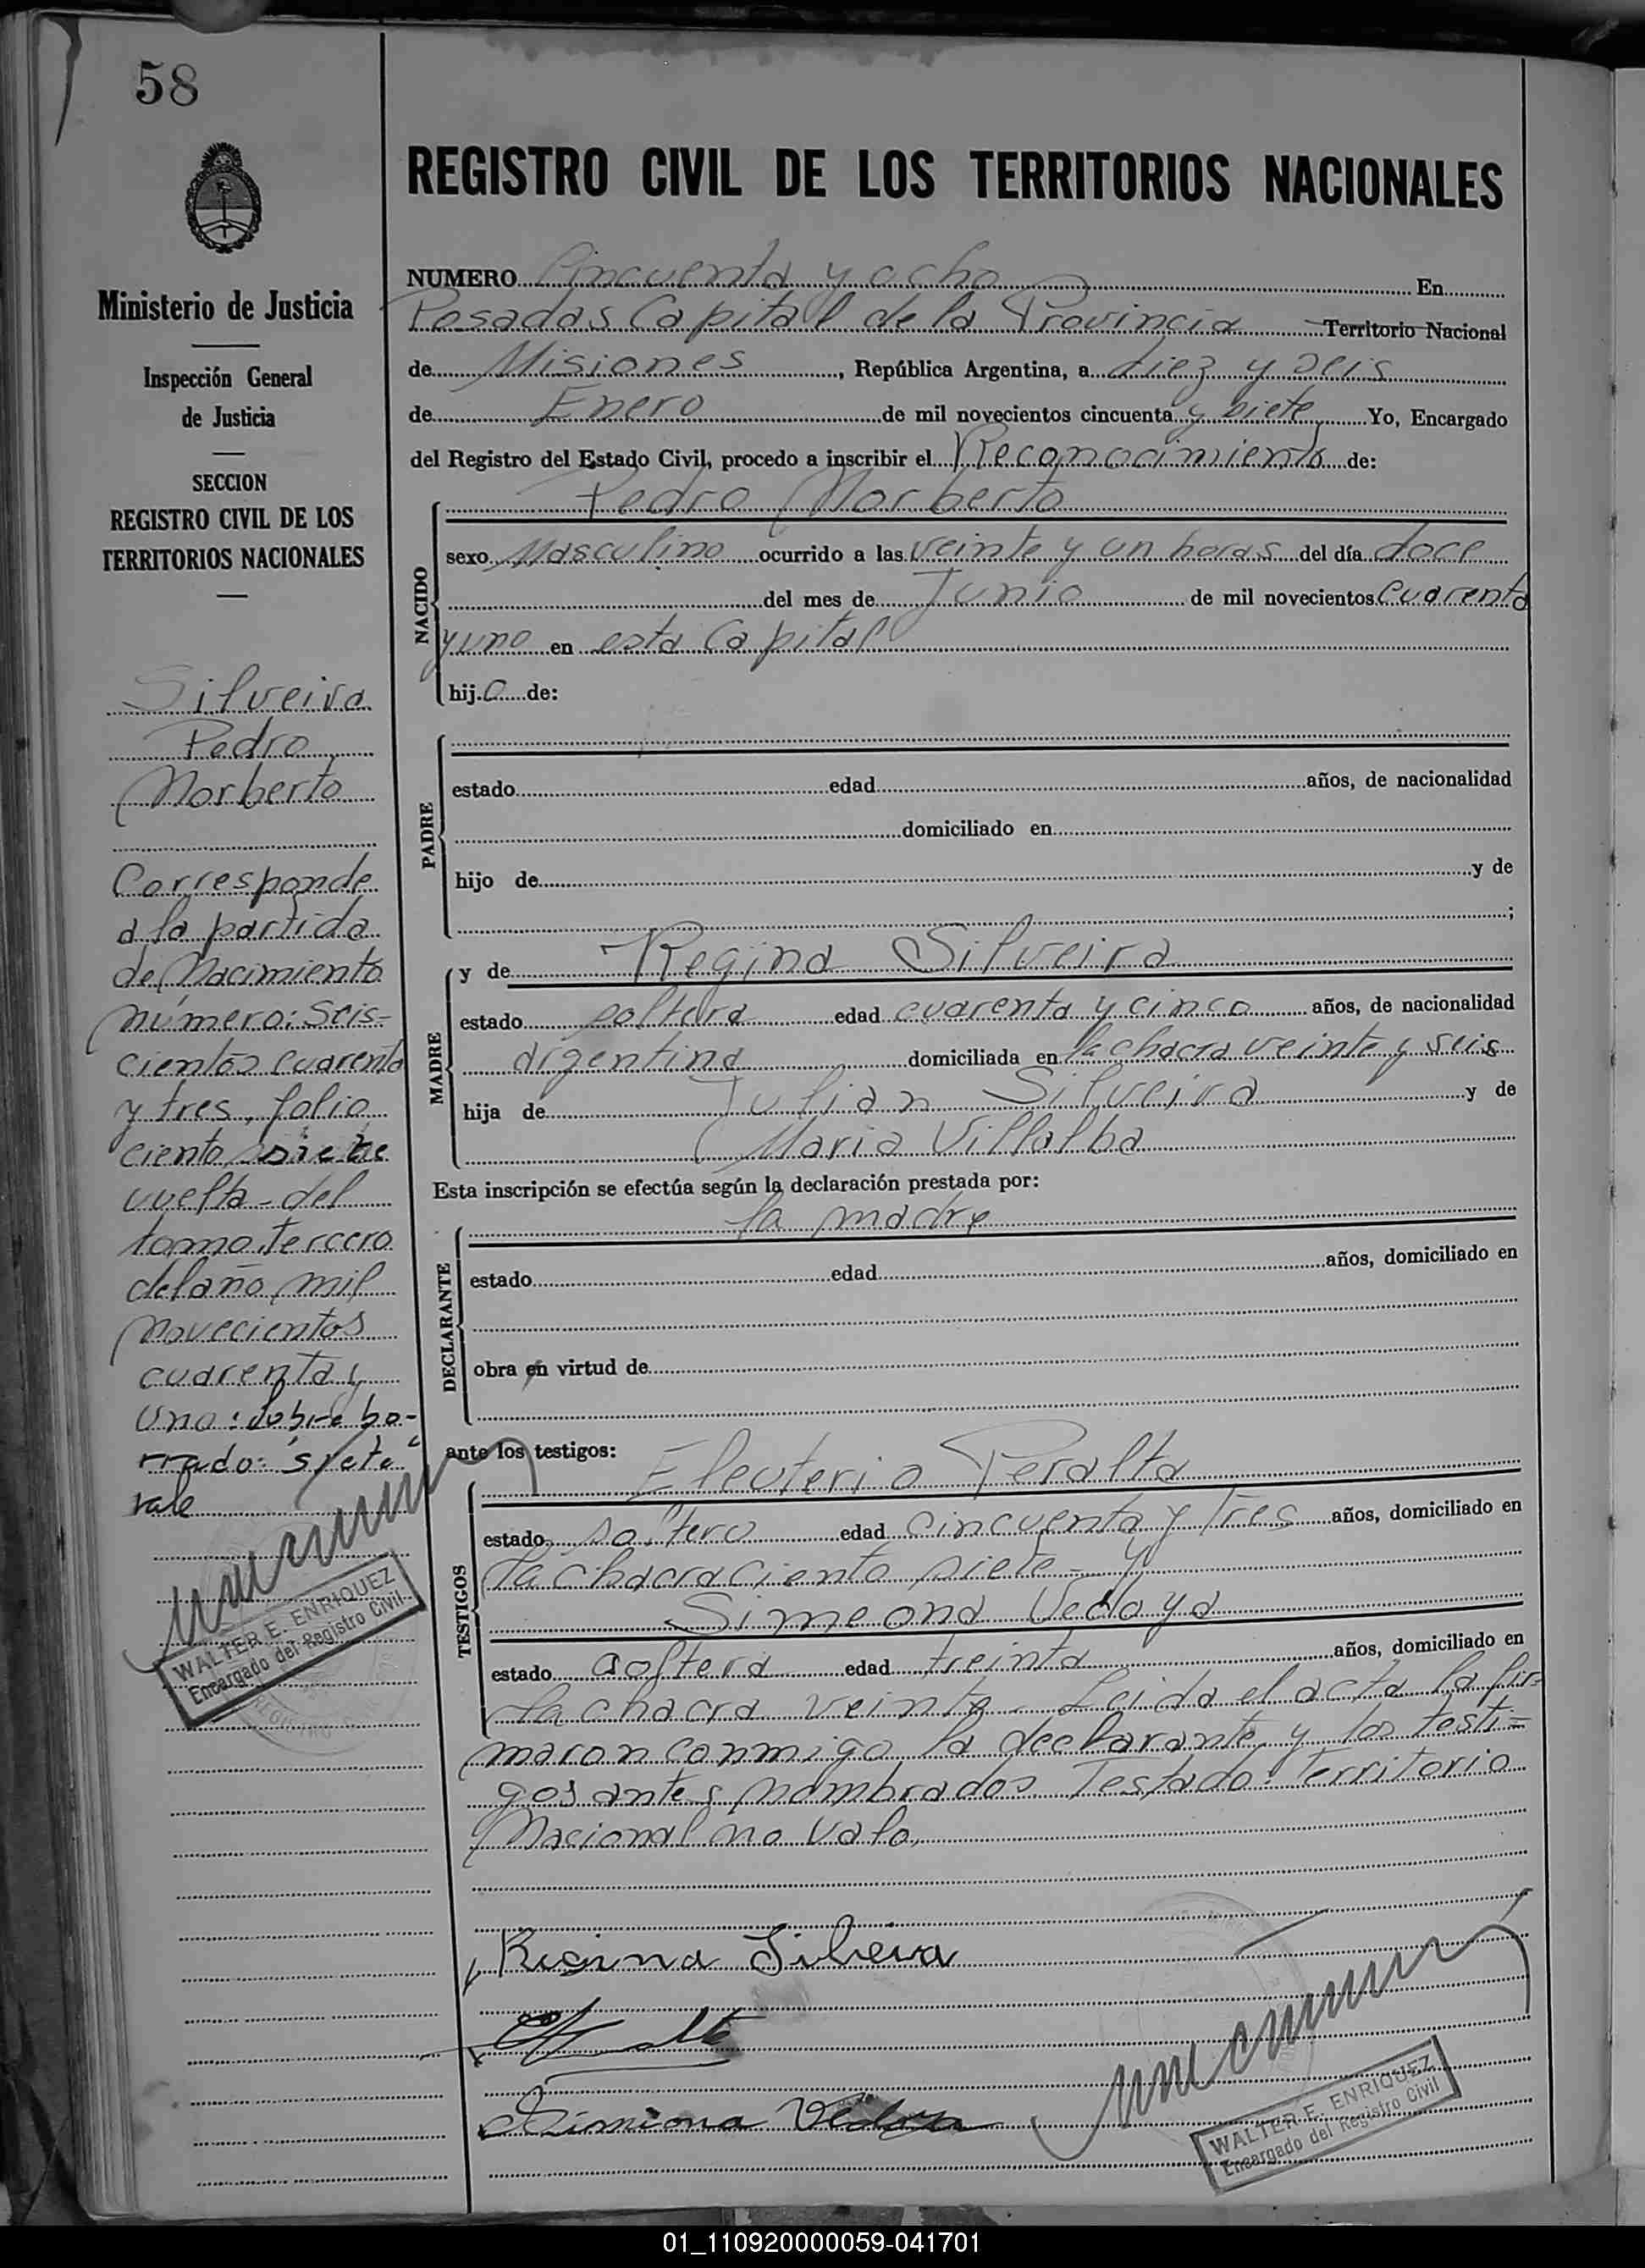 58
Ministerio de Justicia
Inspección General
de Justicia
SECCION
REGISTRO CIVIL DE LOS
TERRITORIOS NACIONALES
Silveira
Pedro
Norberto
Corresponde
a la partida
de Nacimiento
número: Seis-
cientos cuarenta
y tres, folio
ciento siete
vuelta - del
tomo tercero
del año mil
novecientos
cuarenta y
uno: sobre bo-
rrado: "siete"
vale
WALTER E. ENRIQUEZ
Encargado del Registro Civil
REGISTRO CIVIL DE LOS TERRITORIOS NACIONALES
NUMERO Cincuenta y ocho En
Posadas Capital de la Provincia Territorio Nacional
de Misiones, República Argentina, a diez y seis
de Enero de mil novecientos cincuenta y siete Yo, Encargado
del Registro del Estado Civil, procedo a inscribir el Reconocimiento de:
NACIDO
Pedro Norberto
sexo Masculino ocurrido a las veinte y un horas del día doce
del mes de Junio de mil novecientos cuarenta
y uno en esta Capital
hijo de:
PADRE
estado edad años, de nacionalidad
domiciliado en
hijo de y de
;
MADRE
y de Regina Silveira
estado soltera edad cuarenta y cinco años, de nacionalidad
argentina domiciliada en la chacra veinte y seis
hija de Julian Silveira y de
Maria Villalba
Esta inscripción se efectúa según la declaración prestada por:
DECLARANTE
la madre
estado edad años, domiciliado en
obra en virtud de
ante los testigos:
TESTIGOS
Eleuterio Peralta
estado soltero edad cincuenta y tres años, domiciliado en
la chacra ciento siete - y
Simeona Vedoya
estado soltera edad treinta años, domiciliado en
la chacra veinte - Leida el acta la fir-
maron conmigo la declarante y los testi-
gos antes nombrados. Testado: Territorio
Nacional no vale.
Regina Silveira
Simiona Vedoya
WALTER E. ENRIQUEZ
Encargado del Registro Civil
01_110920000059-041701